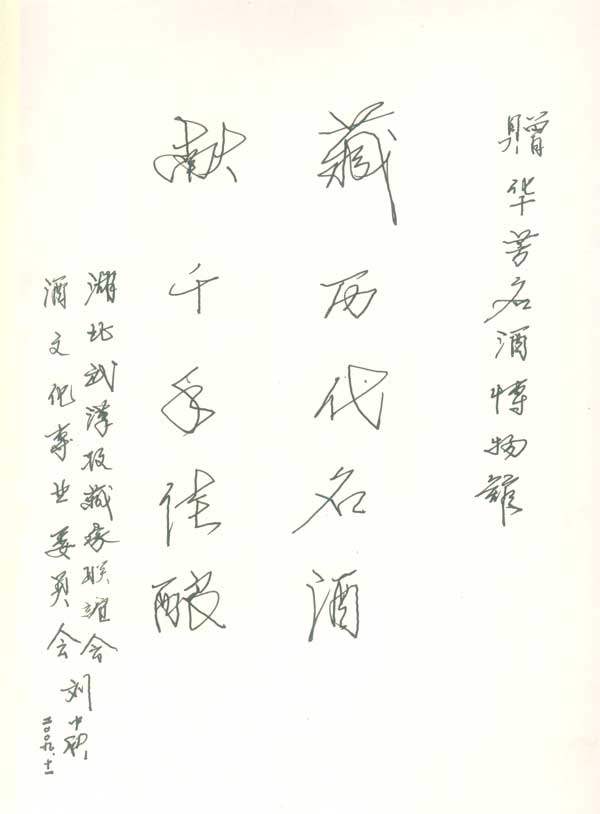 赠华芳名酒博物馆
藏历代名酒
献千年佳酿
湖北武汉收藏家联谊会
酒文化专业委员会 刘中秋
二〇〇九.十一